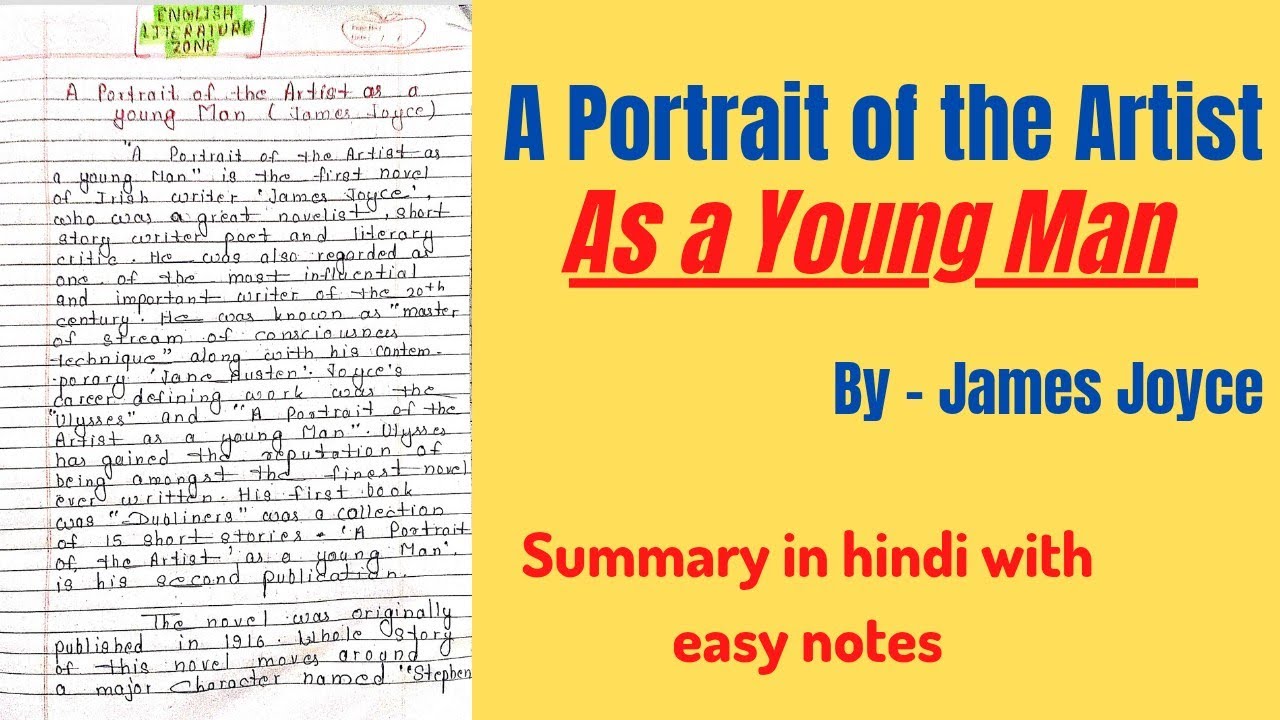 ENGLISH
LITERATURE
ZONE
A Portrait of the Artist as a
young Man (James Joyce)
"A Portrait of the Artist as
a young Man" is the first novel
of Irish writer 'James Joyce',
who was a great novelist, short
story writer poet and literary
critic. He was also regarded as
one of the most influential
and important writer of the 20th
century. He was known as "master
of stream of consciousness
technique" along with his contem-
-porary 'Jane Austen'. Joyce's
career defining work was the
"Ulysses" and "A Portrait of the
Artist as a young Man". Ulysses
has gained the reputation of
being amongst the finest novel
ever written. His first book
was "Dubliners" was a collection
of 15 short stories. 'A Portrait
of the Artist as a young Man'.
is his second publication.
The novel was originally
published in 1916. Whole story
of this novel moves around
a major character named "Stephen
A Portrait of the Artist
As a Young Man
By - James Joyce
Summary in hindi with
easy notes